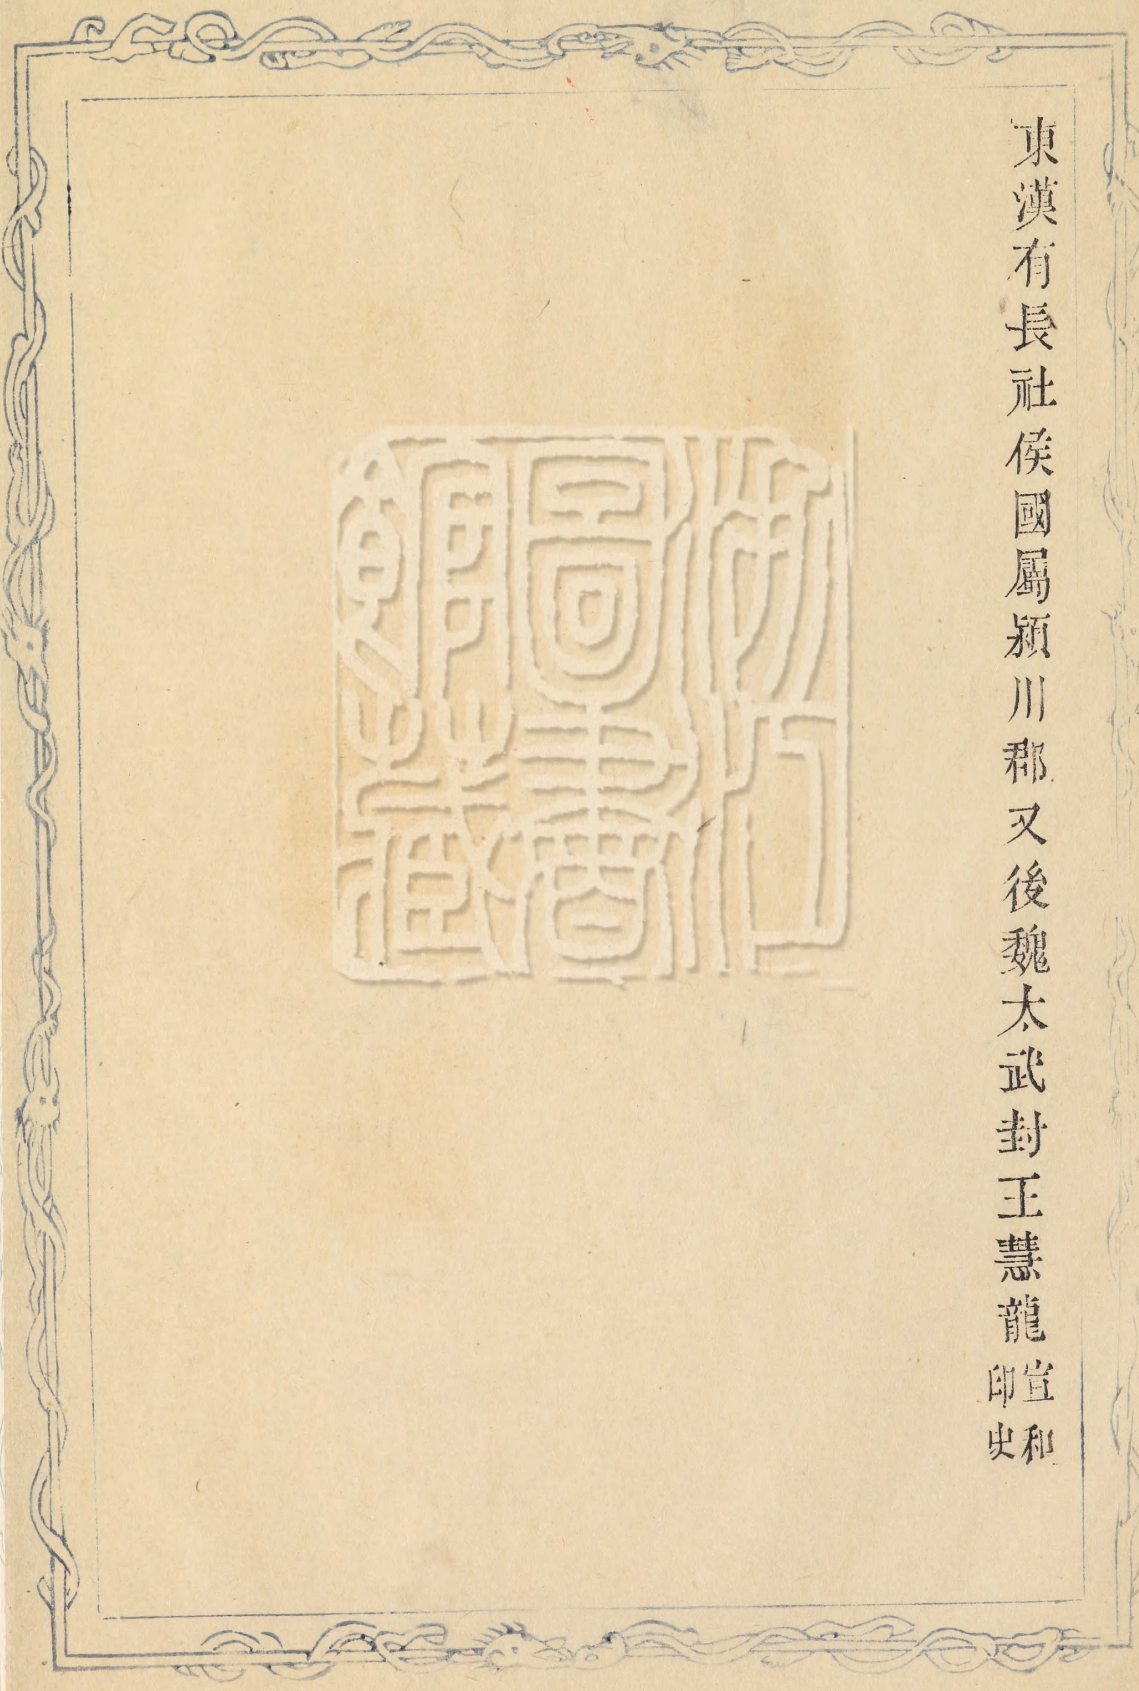 東漢有長社侯國屬潁川郡又後魏太武封王慧龍
宣和
印史
浙江
圖書
館藏